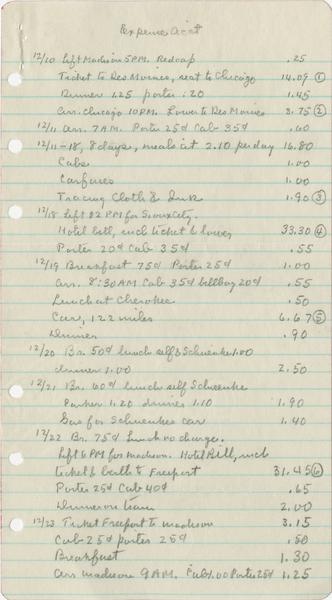 Expense Acct
12/10 Left Madison 5PM. Redcap .25
Ticket to Des Moines, seat to Chicago 14.09 (1)
Dinner 1.25 porter .20 1.45
Arr. Chicago 10PM. Lower to Des Moines 3.75 (2)
12/11 Arr. 7AM. Porter 25¢ Cab 35¢ .60
12/11-18, 8 days, meals at 2.10 per day 16.80
Cabs 1.00
Carfares 1.00
Tracing Cloth & Ink 1.90 (3)
12/18 Left 2 PM for Sioux City.
Hotel bill, incl ticket & lower 33.30 (4)
Porter 20¢ Cab 35¢ .55
12/19 Breakfast 75¢ Porter 25¢ 1.00
Arr. 8:30AM Cab 35¢ bellboy 20¢ .55
Lunch at Cherokee .50
Car, 122 miles 6.67 (5)
Dinner .90
12/20 Br. 50¢ lunch self & Schwenke 1.00
dinner 1.00 2.50
12/21 Br. 60¢ lunch self Schwenke
1.20 dinner 1.10 1.90
Gas for Schwenkes car 1.40
12/22 Br. 75¢ Lunch no charge.
Left 6PM for Madison. Hotel Bill, incl
ticket & berth to Freeport 31.45 (6)
Porter 25¢ Cab 40¢ .65
Dinner on train 2.00
12/23 Ticket Freeport to Madison 3.15
Cab 25¢ porter 25¢ .50
Breakfast 1.30
Arr Madison 9AM. Cab 1.00 Porter 25¢ 1.25